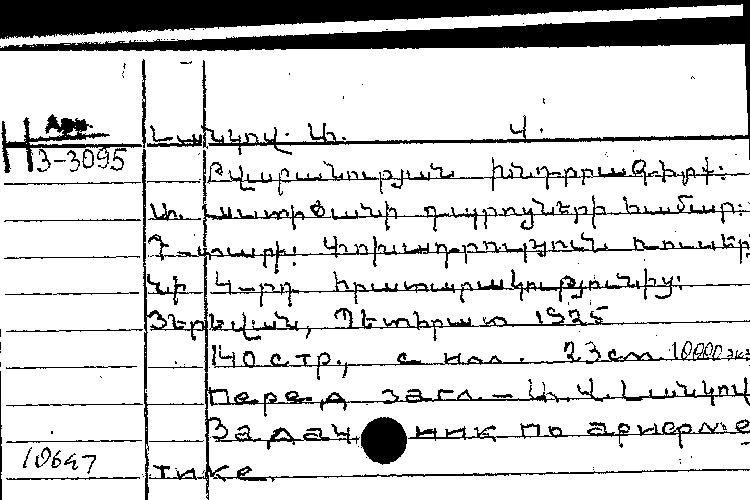 Арм.
3-3095
Լանկով. Ա. Վ.
Թվաբանության խնդրագիրք:
Ա. աստիճանի դպրոցների համար:
Դ-տարի: Փոխադրություն ռուսերե
նի 4-րդ հրատարակությունից:
Յերեվան, Պետհրատ 1925
140 стр., с илл. 23 см 10000 экз
Перед загл. – Ա. Վ. Լանկով
Задачник по арифме
тике.
10647